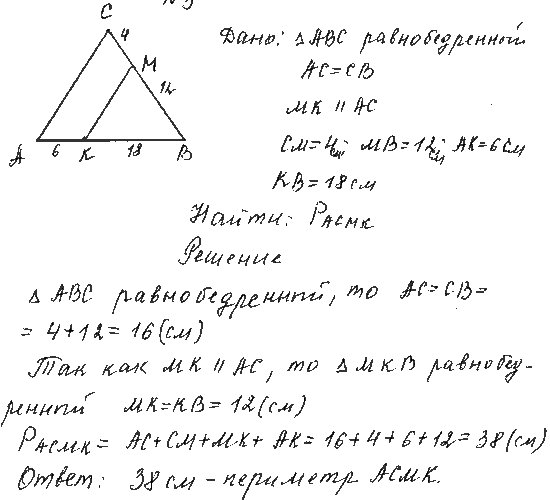 C
4
M
12
A 6 K 18 B
Дано: △ABC равнобедренный
AC=CB
MK || AC
CM=4см; MB=12см; AK=6см
KB=18см
Найти: P_ACMK
Решение
△ ABC равнобедренный, то AC=CB=
= 4+12=16(см)
Так как MK || AC, то △MKB равнобед-
ренный MK=KB=12(см)
P_ACMK= AC+CM+MK+ AK=16+4+6+12=38(см)
Ответ: 38см-периметр ACMK.